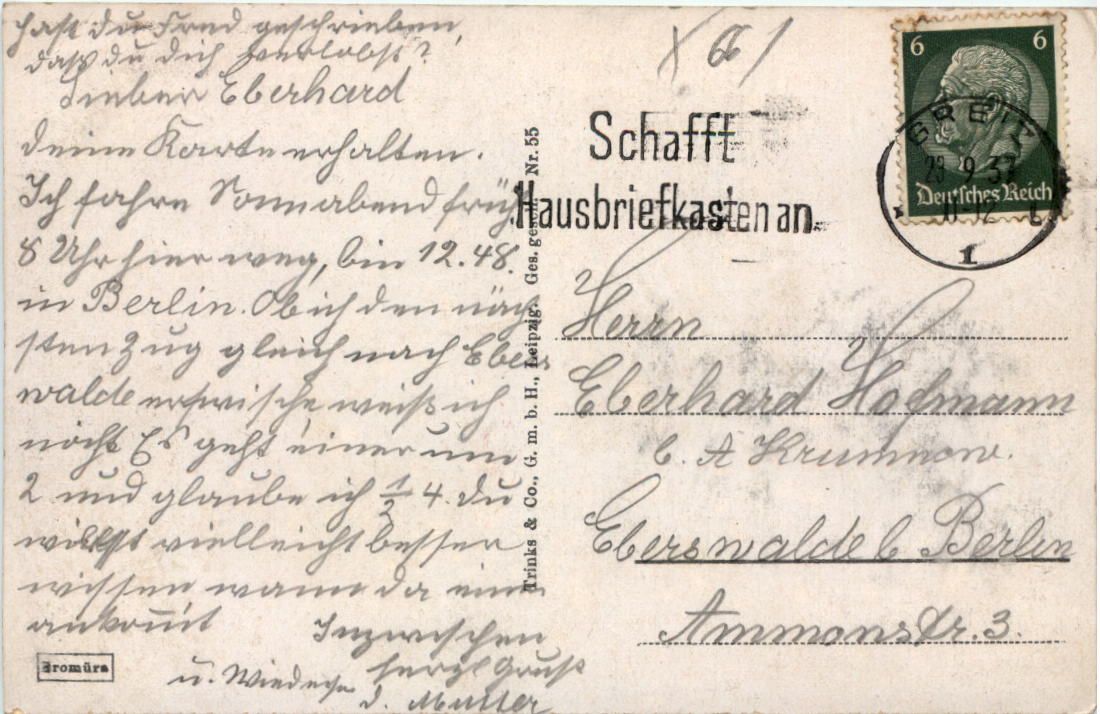 hast du Fred geschrieben,
daß du dich verlobst?
Lieber Eberhard
deine Karte erhalten.
Ich fahre Sonnabend früh
8 Uhr hier weg, bin 12.48.
in Berlin. Ob ich den näch
sten Zug gleich nach Ebers
walde erwische weiß ich
nicht Es geht einer um
2 und glaube ich ½ 4. du
willst vielleicht besser
wissen wann da einer
ankommt
Inzwischen
herzl Gruß
u. Wiederseh
d. Mutter
Bromüra
Trinks & Co., G. m. b. H., Leipzig. Ges. gesch. Nr. 55
Schafft
Hausbriefkasten an.
6 6
Deutsches Reich
GREIZ
23 9 37
11-12
1
Herrn
Eberhard Hofmann
b. A Krumnow.
Eberswalde b Berlin
Ammonstr. 3.